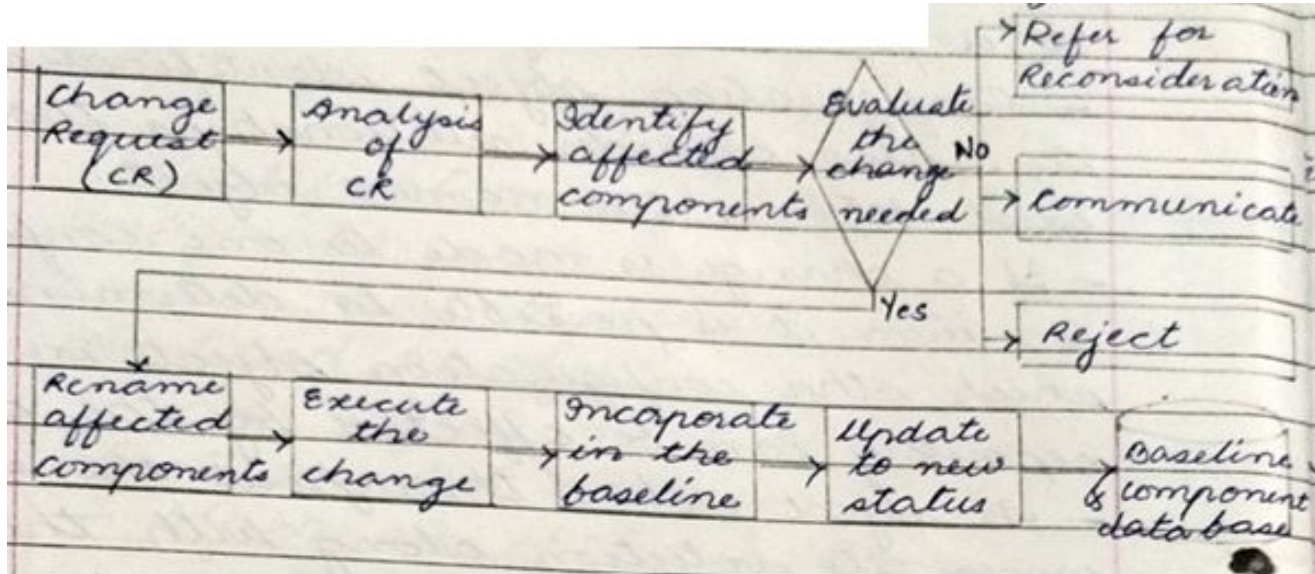 Change
Request
(CR)
Analysis
of
CR
Identify
affected
components
Evaluate
the
change
needed
No
Refer for
Reconsideration
Communicate
Reject
Yes
Rename
affected
components
Execute
the
change
Incorporate
in the
baseline
Update
to new
status
Baseline
& component
data base